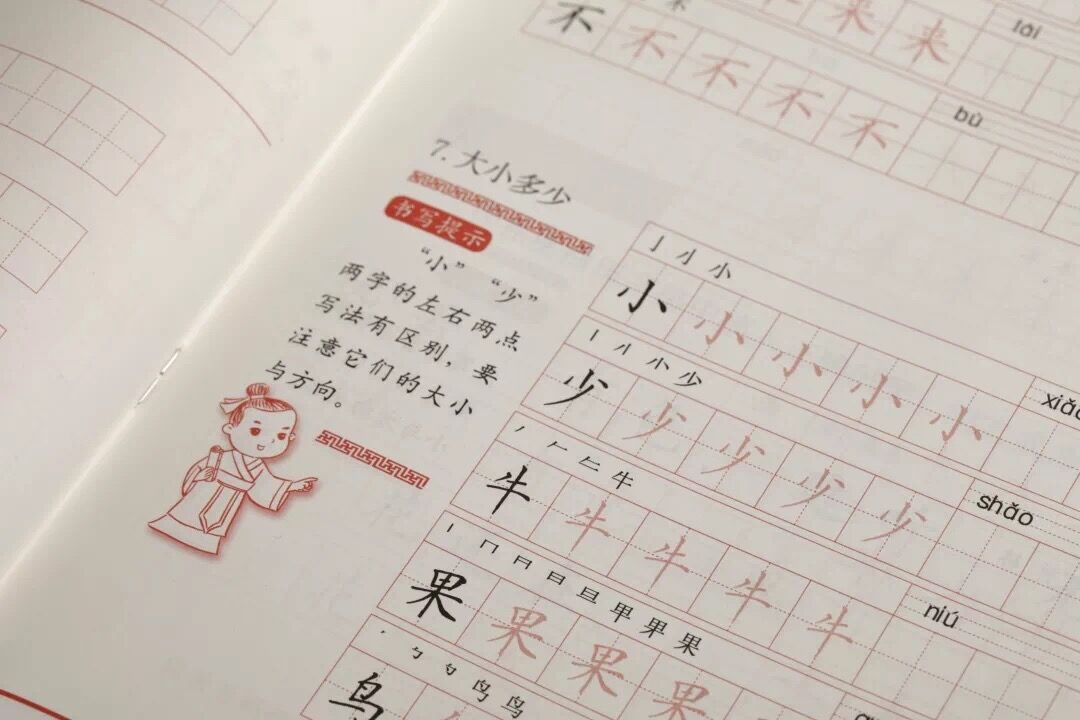 来 来
lái
不 不 不 不 不
bù
7. 大小多少
书写提示
“小”“少”
两字的左右两点
写法有区别，要
注意它们的大小
与方向。
亅 小 小
小 小 小 小 小
小 少
少 少 少 少 少
shǎo
牛
牛 牛 牛 牛 牛
niú
日 旦 甲 果 果
果 果 果 果
鸟 鸟
鸟